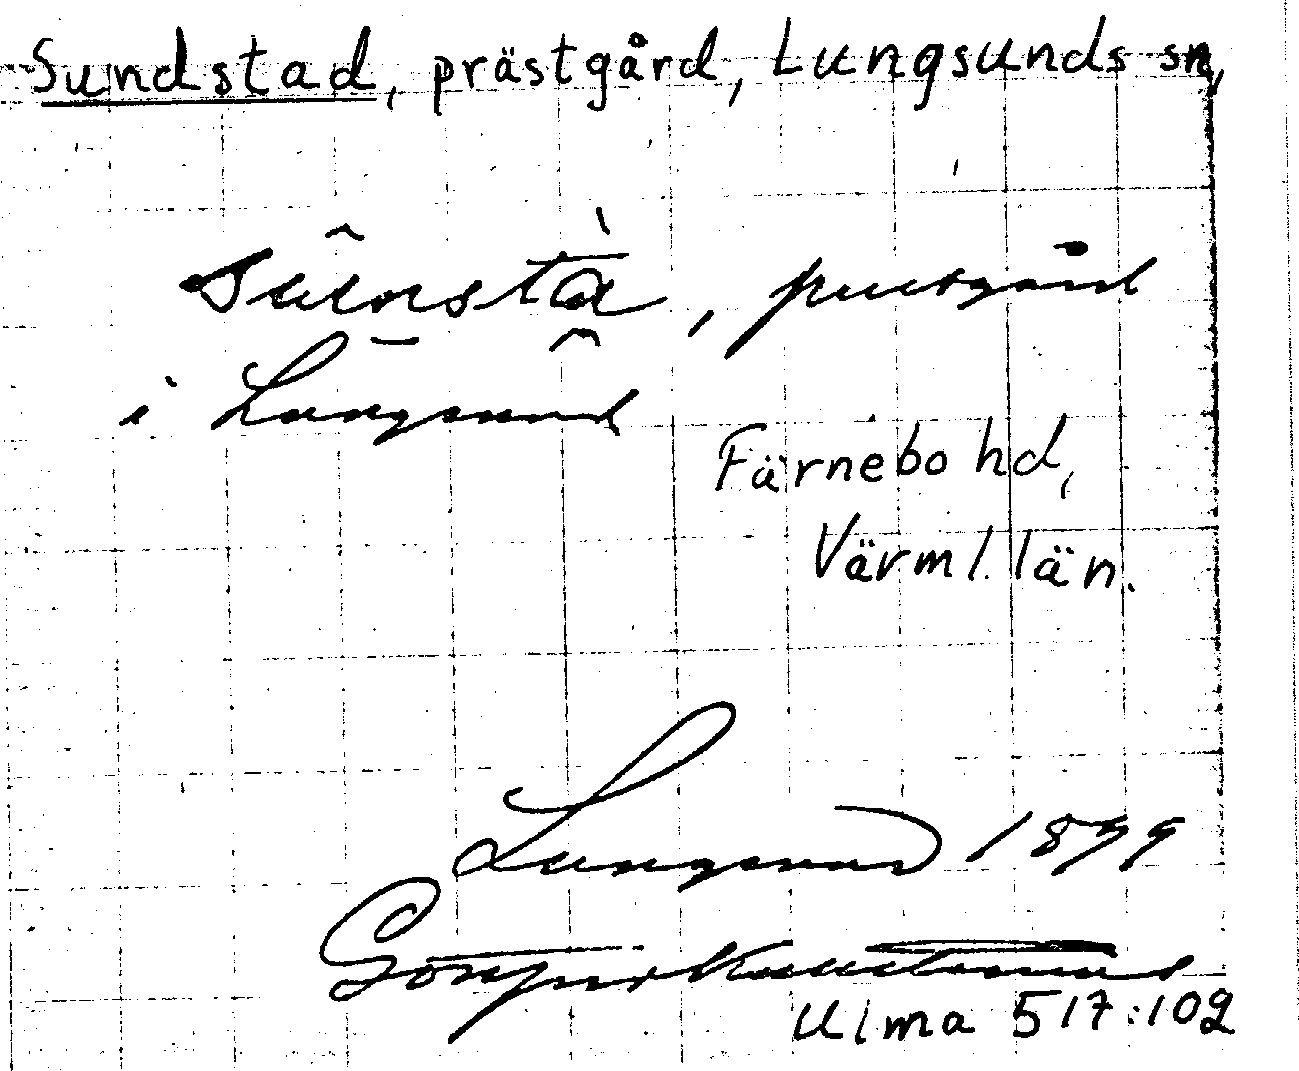 Sundstad, prästgård, Lungsunds sn,
Sûnstà, prestgård
i Lungsund
Färnebo hd,
Värml. län.
Lungsund 1899
Ulma 517:102